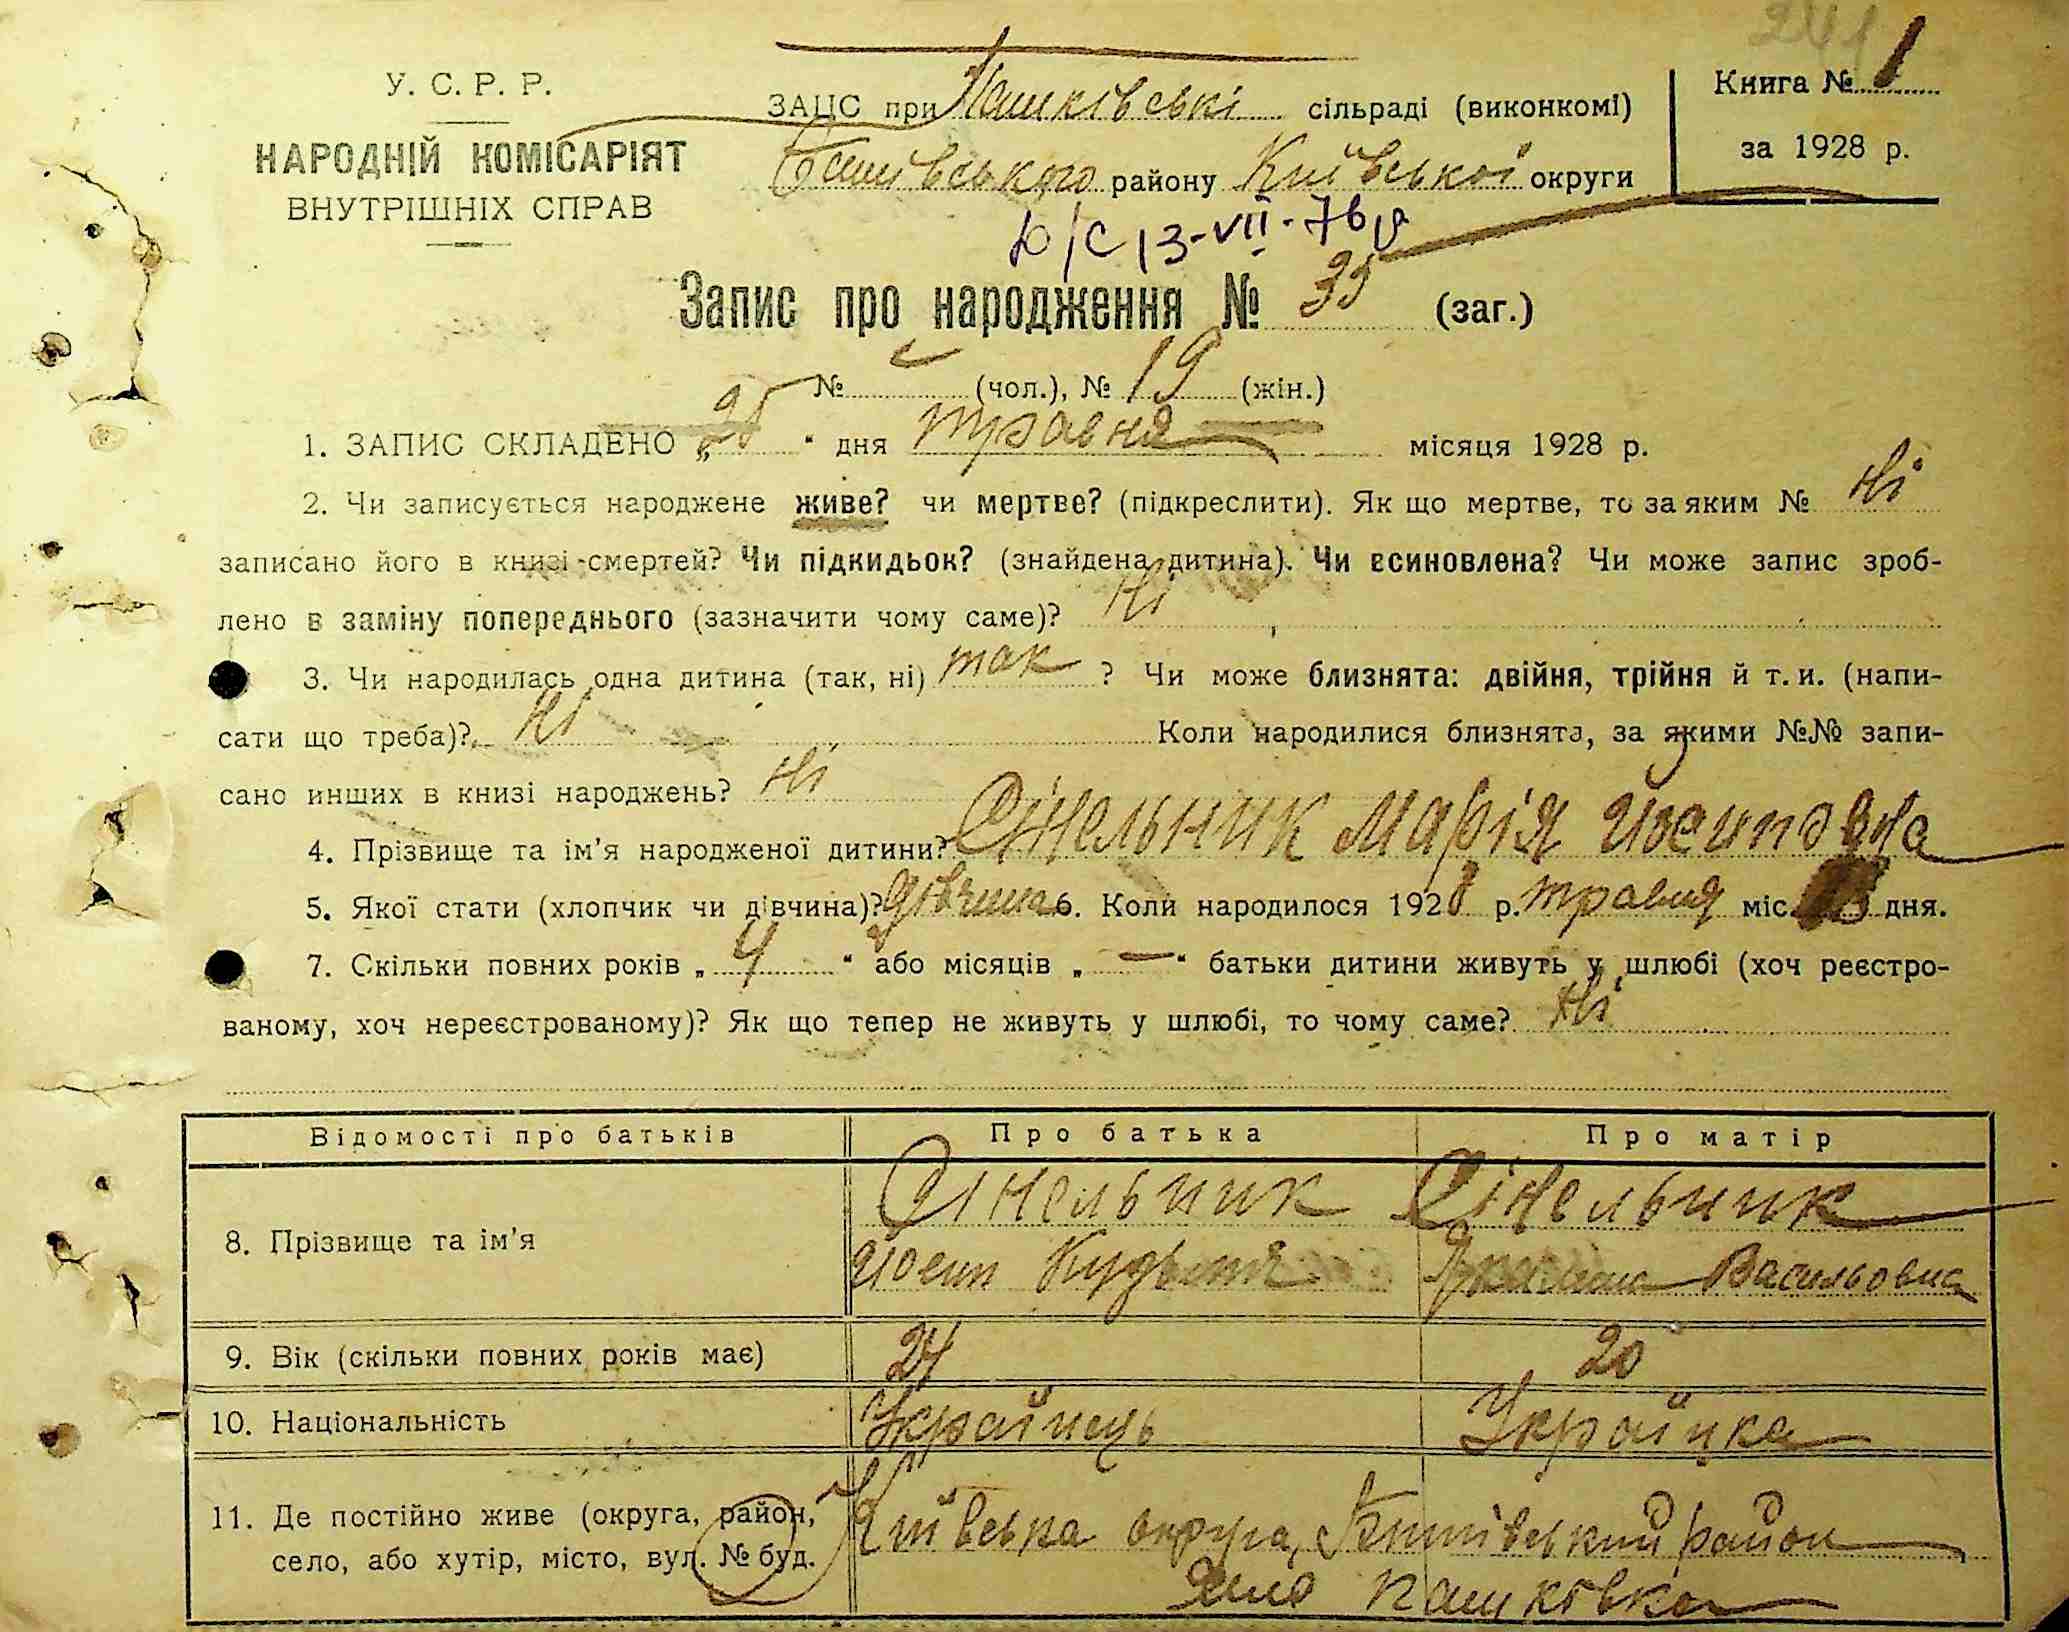 241
У. С. Р. Р.
НАРОДНІЙ КОМІСАРІЯТ
ВНУТРІШНІХ СПРАВ
ЗАЦС при Пашківські сільраді (виконкомі)
району Київської округи
Книга № 1
за 1928 р.
13-VII-76
Запис про народження № 35 (заг.)
№ (чол.), № 19 (жін.)
1. ЗАПИС СКЛАДЕНО „25“ дня травня місяця 1928 р.
2. Чи записується народжене живе? чи мертве? (підкреслити). Як що мертве, то за яким № Ні
записано його в книзі смертей? Чи підкидьок? (знайдена дитина). Чи всиновлена? Чи може запис зроб-
лено в заміну попереднього (зазначити чому саме)? Ні
3. Чи народилась одна дитина (так, ні) так ? Чи може близнята: двійня, трійня й т. и. (напи-
сати що треба)? Ні Коли народилися близнята, за якими №№ запи-
сано инших в книзі народжень? Ні
4. Прізвище та ім’я народженої дитини? Сінельник Марія Йосиповна
5. Якої стати (хлопчик чи дівчина)? дівчина 6. Коли народилося 1928 р. травня міс. дня.
7. Скільки повних років „ 4 “ або місяців „ — “ батьки дитини живуть у шлюбі (хоч реєстро-
ваному, хоч нереєстрованому)? Як що тепер не живуть у шлюбі, то чому саме? Ні
Відомості про батьків Про батька Про матір
8. Прізвище та ім’я Сінельник Сінельник
Йосип Васильовна
9. Вік (скільки повних років має) 24 20
10. Національність Українець Українка
11. Де постійно живе (округа, район, Київська округа, район
село, або хутір, місто, вул. № буд. село Пашковка